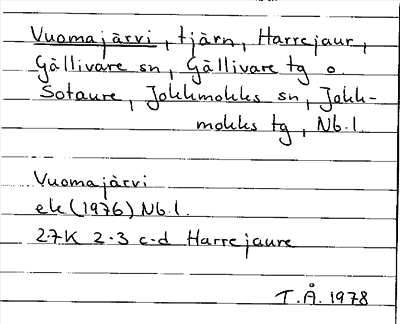 Vuomajärvi, tjärn, Harrejaur,
Gällivare sn, Gällivare tg o.
Sotaure, Jokkmokks sn, Jokk-
mokks tg, Nb.l.
Vuomajärvi
ek (1976) Nb.l.
27K 2-3 c-d Harrejaure
T.Å. 1978